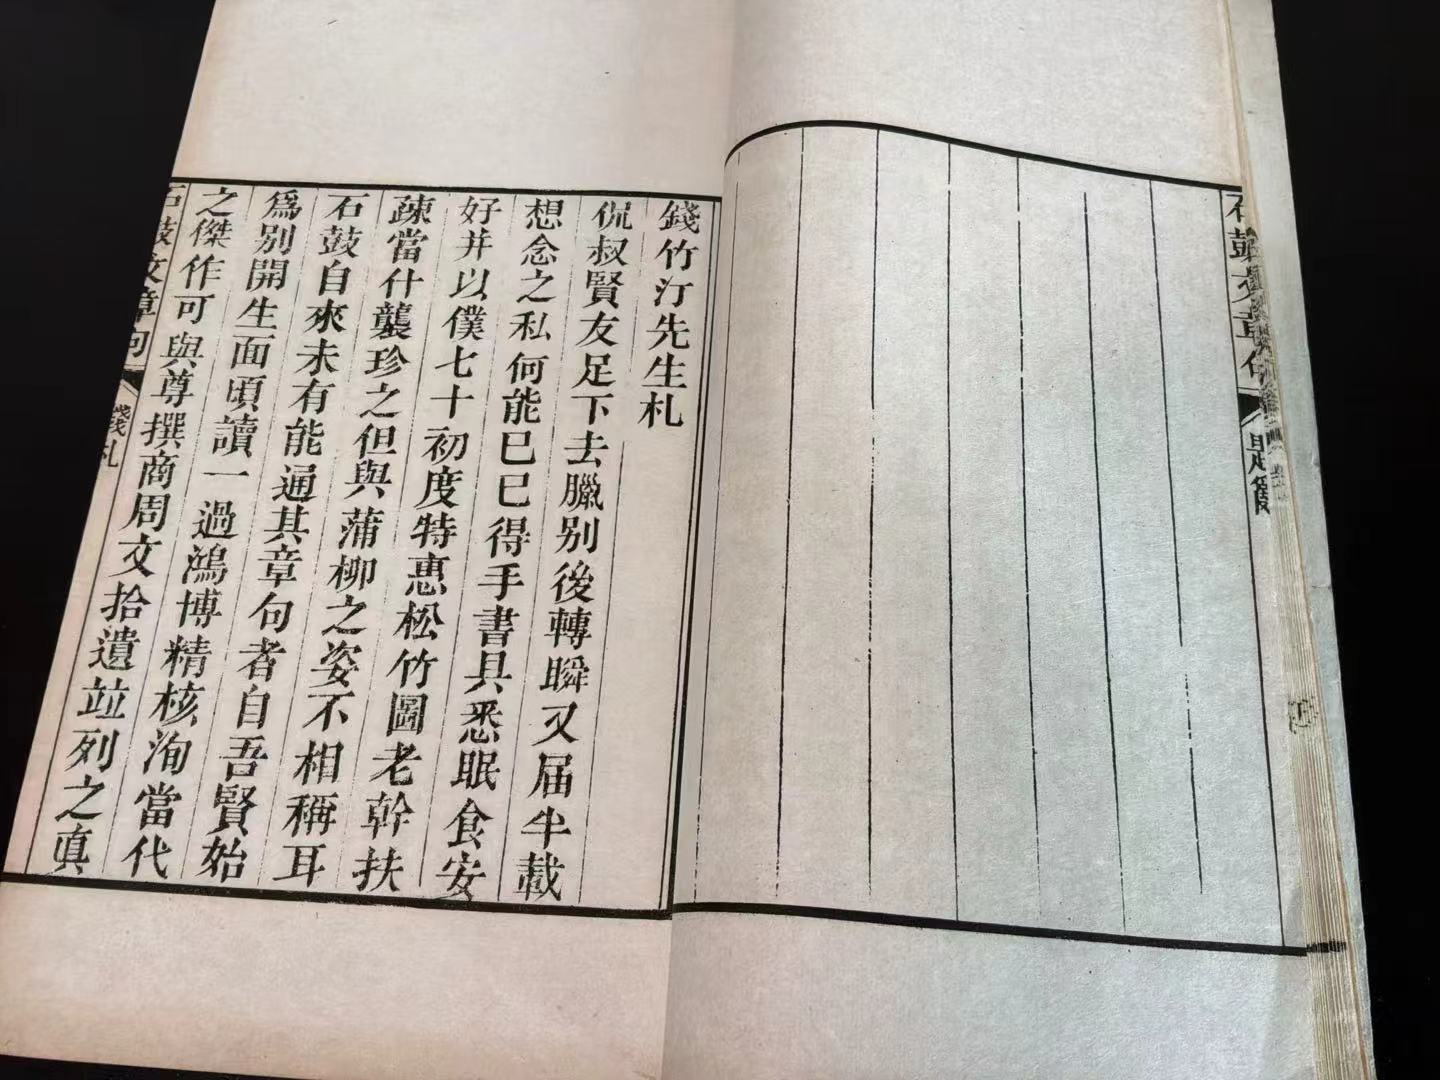 石鼓文章句
題
錢竹汀先生札
侃叔賢友足下去臘别後轉瞬又届半載
想念之私何能已已得手書具悉眠食安
好并以僕七十初度特惠松竹圖老幹扶
疎當什襲珍之但與蒲柳之姿不相稱耳
石鼓自來未有能通其章句者自吾賢始
爲別開生面頃讀一過鴻博精核洵當代
之傑作可與尊撰商周文拾遺竝列之眞
石鼓文章句
錢札